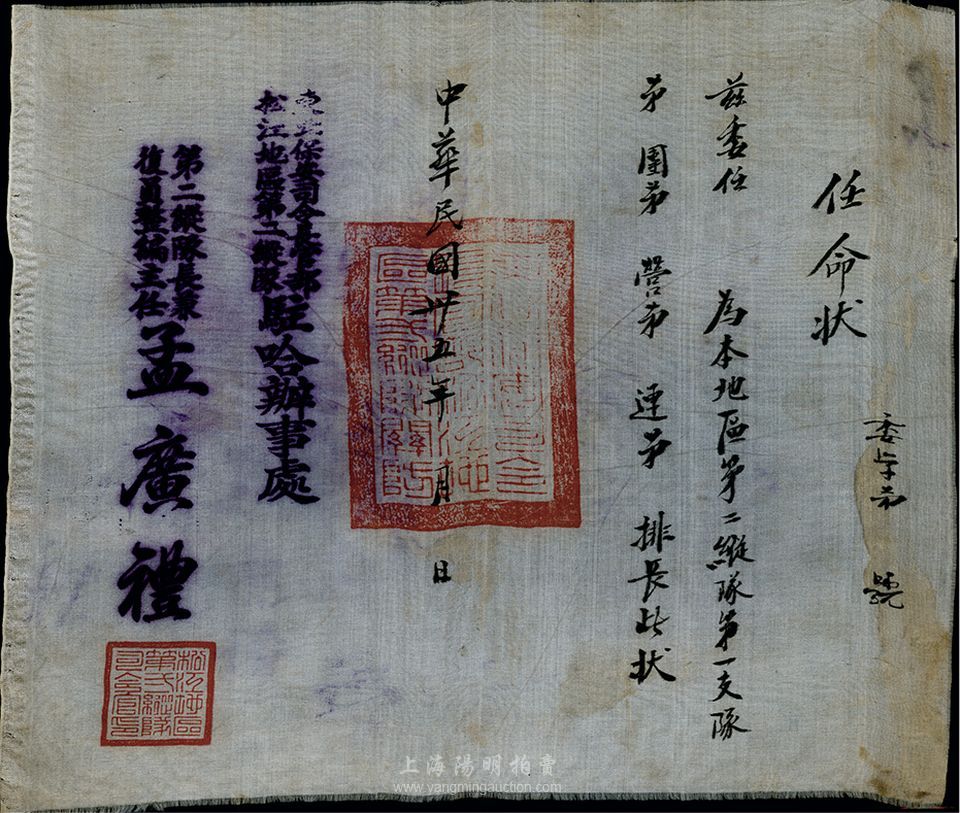 委字第 號
任命狀
茲委任 為本地區第二縱隊第一支隊
第 團第 營第 連第 排長此狀
中華民國卅五年 月 日
東北保安司令長官部
松江地區第二縱隊
駐哈辦事處
第二縱隊長兼
復員整編主任
孟廣禮
松江地區
第弍縱隊
司令官印
上海陽明拍賣
www.yangmingauction.com